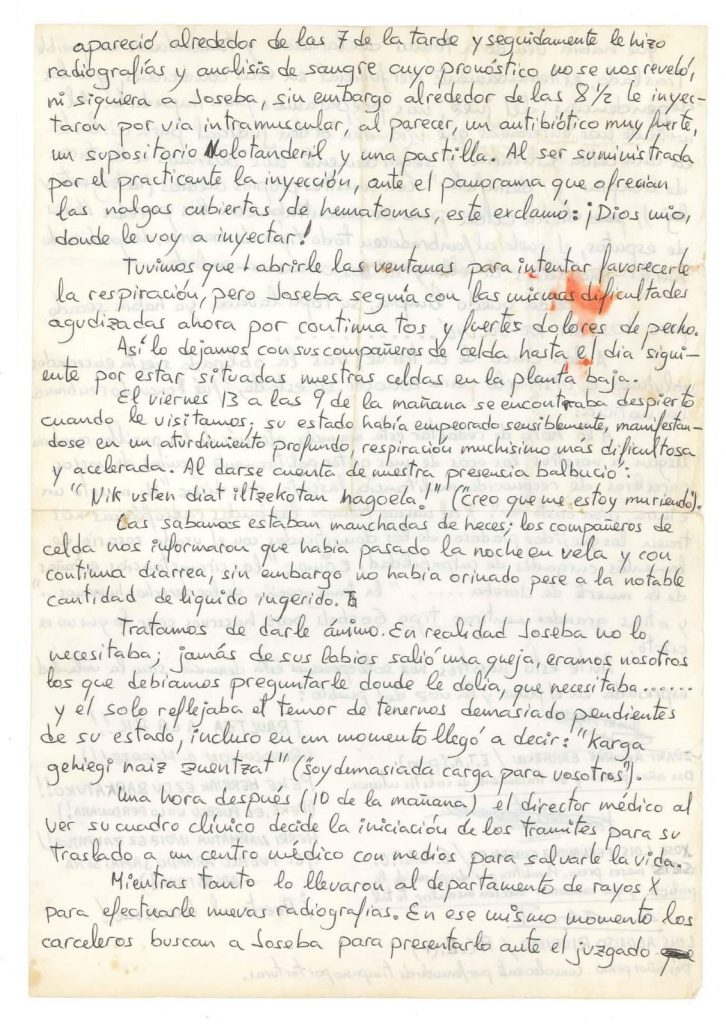 apareció alrededor de las 7 de la tarde y seguidamente le hizo
radiografías y analisis de sangre cuyo pronóstico no se nos reveló,
ni siquiera a Joseba, sin embargo alrededor de las 8 1/2 le inyec-
taron por via intramuscular, al parecer, un antibiótico muy fuerte,
un supositorio Nolotanderil y una pastilla. Al ser suministrada
por el practicante la inyección, ante el panorama que ofrecian
las nalgas cubiertas de hematomas, este exclamó: ¡Dios mio,
donde le voy a inyectar!
Tuvimos que abrirle las ventanas para intentar favorecerle
la respiración, pero Joseba seguía con las mismas dificultades
agudizadas ahora por continua tos y fuertes dolores de pecho.
Así lo dejamos con sus compañeros de celda hasta el dia sigui-
ente por estar situadas nuestras celdas en la planta baja.
El viernes 13 a las 9 de la mañana se encontraba despierto
cuando le visitamos; su estado había empeorado sensiblemente, manifestan-
dose en un aturdimiento profundo, respiración muchisimo más dificultosa
y acelerada. Al darse cuenta de nuestra presencia balbució:
"Nik usten diat iltzekotan hagoela!" ("creo que me estoy muriendo").
Las sabanas estaban manchadas de heces; los compañeros de
celda nos informaron que había pasado la noche en vela y con
continua diarrea, sin embargo no había orinado pese a la notable
cantidad de liquido ingerido.
Tratamos de darle ánimo. En realidad Joseba no lo
necesitaba; jamás de sus labios salió una queja, eramos nosotros
los que debiamos preguntarle donde le dolía, que necesitaba......
y el solo reflejaba el temor de tenernos demasiado pendientes
de su estado, incluso en un momento llegó a decir: "Karga
gehiegi naiz zuentzat" ("soy demasiada carga para vosotros").
Una hora después (10 de la mañana) el director médico al
ver su cuadro clínico decide la iniciación de los tramites para su
traslado a un centro médico con medios para salvarle la vida.
Mientras tanto lo llevaron al departamento de rayos X
para efectuarle nuevas radiografías. En ese mismo momento los
carceleros buscan a Joseba para presentarlo ante el juzgado